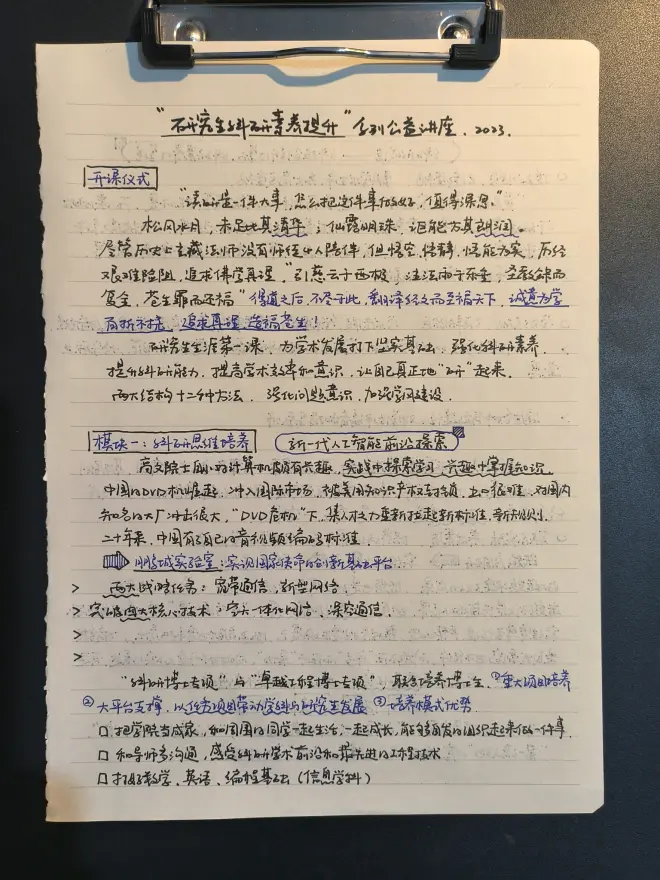 "研究生科研素养提升"系列公益讲座. 2023.
开课仪式
"读研是一件大事, 怎么把这件事做好, 值得深思."
松风水月, 未足比其清华; 仙露明珠, 讵能方其朗润。
尽管历史上玄奘法师没有师徒4人陪伴, 但悟空、悟静、悟能为实, 历经
艰难险阻, 追求佛学真理, "引慈云于西极, 注法雨于东垂, 圣教缺而
复全, 苍生罪而还福" 得道之后, 不尽于此, 翻译经文而至福天下, 诚意为学
而折不挠, 追求真理, 造福苍生!
研究生生涯第一课, 为学术发展打下坚实基础, 强化科研素养,
提升科研能力, 提高学术效率和意识, 让自己真正地"研"起来.
两大结构十二种方法. 强化问题意识, 加强学风建设.
模块一: 科研思维培养 新一代人工智能前沿探索
高文院士团队 对计算机颇有兴趣, 实践中探索学习 兴趣中掌握知识
中国的DVD机崛起, 冲入国际市场, 被美国知识产权封锁, 出口很难, 对国内
知名的大厂冲击很大, "DVD危机"下, 集人才之力重新拉起新标准, 新规则,
二十年来, 中国有了自己的音视频编码标准
鹏城实验室: 实现国家使命的创新基础平台
> 两大战略任务: 宽带通信, 新型网络.
> 突破四大核心技术: 空天一体化网络, 深空通信.
>
>
"科研博士专项"与"卓越工程博士专项", 联合培养博士生. ①重大项目培养
②大平台支撑, 以任务项目带动学科与研究生发展 ③培养模式优势
□ 把学院当成家, 和周围的同学一起生活, 一起成长, 能够自发的组织起来做一件事
□ 和导师多沟通, 感受科研学术前沿和最先进的工程技术
□ 打好数学、英语、编程基础 (信息学科)